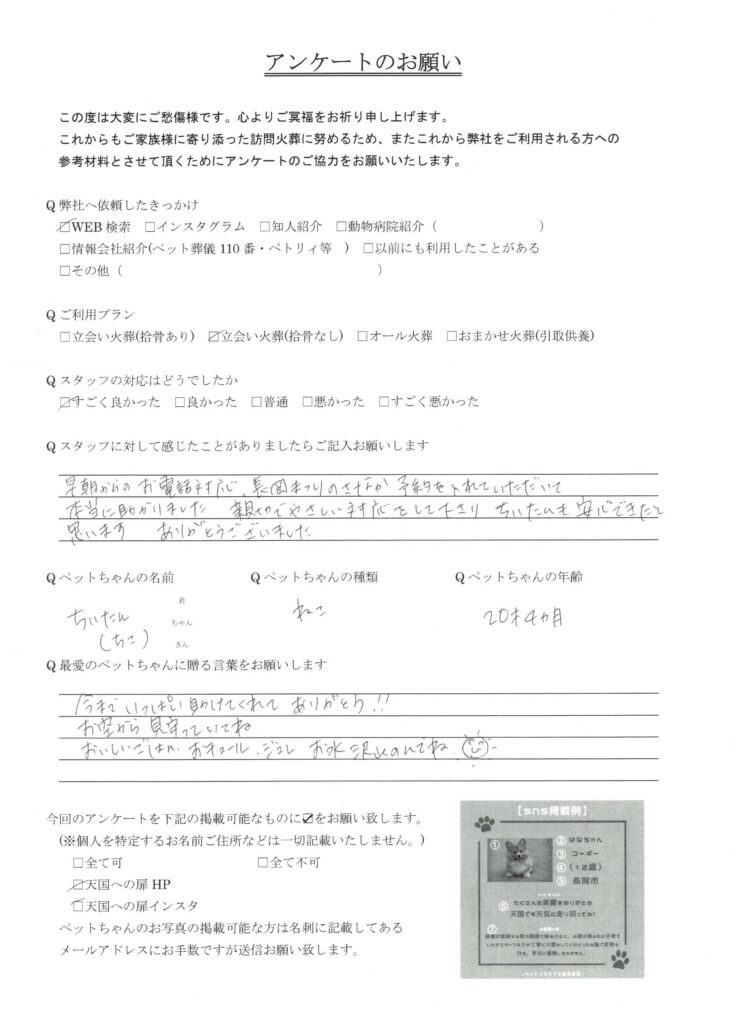 アンケートのお願い
この度は大変にご愁傷様です。心よりご冥福をお祈り申し上げます。
これからもご家族様に寄り添った訪問火葬に努めるため、またこれから弊社をご利用される方への
参考材料とさせて頂くためにアンケートのご協力をお願いいたします。
Q 弊社へ依頼したきっかけ
☑WEB 検索 □インスタグラム □知人紹介 □動物病院紹介（ ）
□情報会社紹介(ペット葬儀 110 番・ペトリィ等 ) □以前にも利用したことがある
□その他（ ）
Q ご利用プラン
□立会い火葬(拾骨あり) ☑立会い火葬(拾骨なし) □オール火葬 □おまかせ火葬(引取供養)
Q スタッフの対応はどうでしたか
☑すごく良かった □良かった □普通 □悪かった □すごく悪かった
Q スタッフに対して感じたことがありましたらご記入お願いします
早朝からのお電話対応、長岡まつりのさなか 予約を入れていただいて
本当に助かりました 親切でやさしい対応をして下さり ちいたんも安心できたと
思います ありがとうございました
Q ペットちゃんの名前 Q ペットちゃんの種類 Q ペットちゃんの年齢
ちいたん 君 ちゃん さん ねこ 20才4ヵ月
(ちこ)
Q 最愛のペットちゃんに贈る言葉をお願いします
今まで いっぱい助けてくれて ありがとう!!
お空から 見守っていてね
おいしいごはん、おチュール、ジュレ お水 沢山のんでね
今回のアンケートを下記の掲載可能なものに☑をお願い致します。
(※個人を特定するお名前ご住所などは一切記載いたしません。)
□全て可 □全て不可
☑天国への扉 HP
☑天国への扉インスタ
ペットちゃんのお写真の掲載可能な方は名刺に記載してある
メールアドレスにお手数ですが送信お願い致します。
【sns掲載例】
① ② はなちゃん
③ コーギー
④ (12歳)
⑤ 長岡市
⑥ たくさんの笑顔をありがとう
天国でも元気に走り回ってね!
⑦